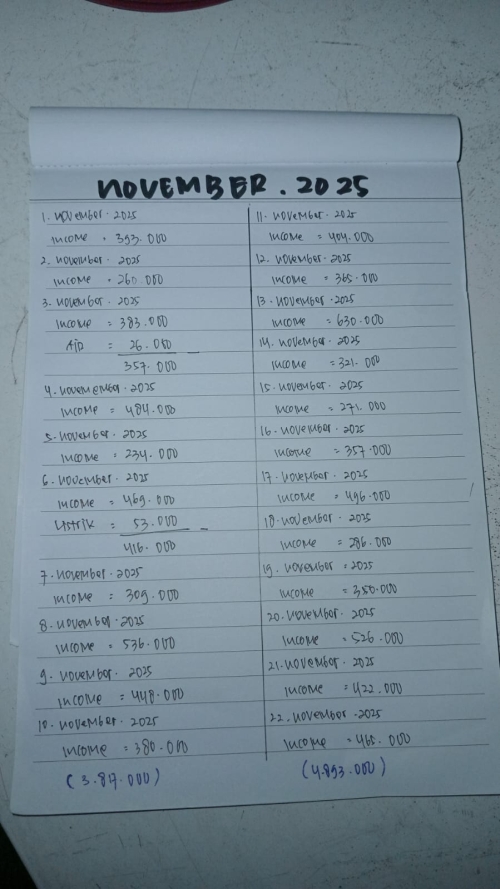 NOVEMBER. 2025
1. November. 2025
Income = 393.000
2. November. 2025
Income = 260.000
3. November. 2025
Income = 383.000
Air = 26.000 _
357.000
4. November. 2025
Income = 484.000
5. November. 2025
Income = 234.000
6. November. 2025
Income = 469.000
Listrik = 53.000 _
416.000
7. November. 2025
Income = 309.000
8. November. 2025
Income = 536.000
9. November. 2025
Income = 448.000
10. November. 2025
Income = 380.000
(3.817.000)
11. November. 2025
Income = 404.000
12. November. 2025
Income = 365.000
13. November. 2025
Income = 630.000
14. November. 2025
Income = 321.000
15. November. 2025
Income = 271.000
16. November. 2025
Income = 357.000
17. November. 2025
Income = 496.000
18. November. 2025
Income = 286.000
19. November. 2025
Income = 350.000
20. November. 2025
Income = 526.000
21. November. 2025
Income = 422.000
22. November. 2025
Income = 465.000
(4.893.000)